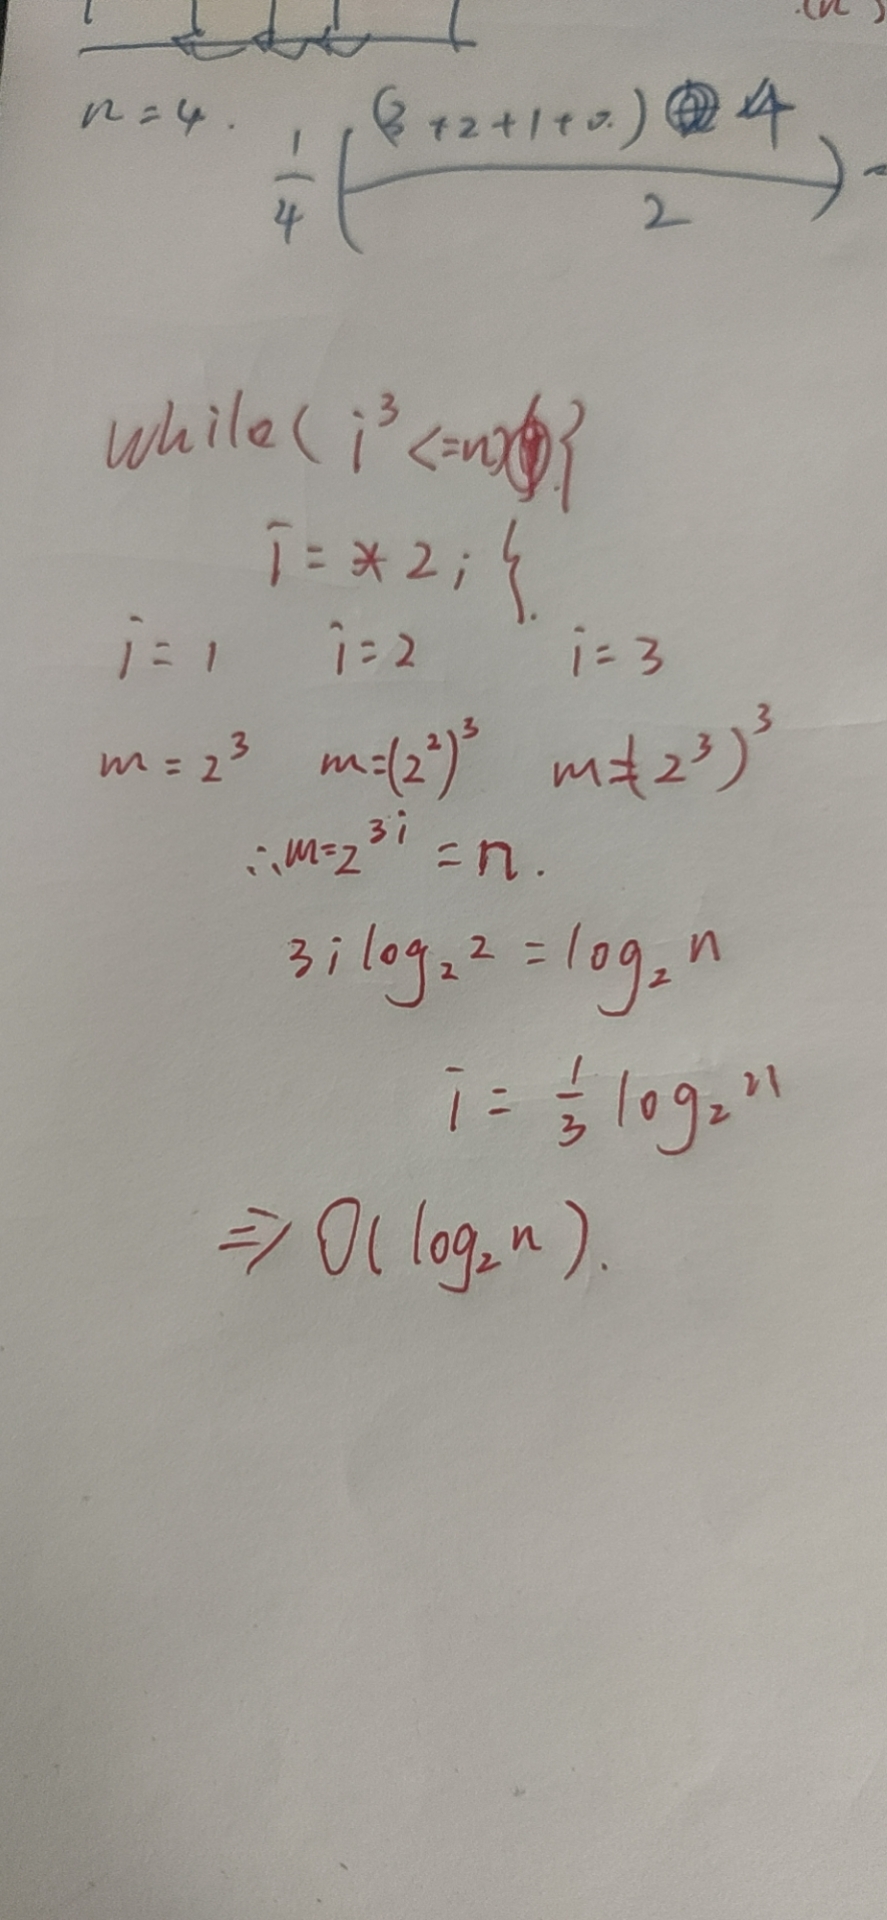 (n)
n=4.
1/4 ((3+2+1+0.) 4 / 2) -
while( i³ <=n){
i = * 2; {.
i = 1 i = 2 i = 3
m = 2³ m=(2²)³ m=(2³)³
∴m=2³ⁱ = n.
3i log₂2 = log₂n
i = 1/3 log₂n
⇒ O( log₂n ).